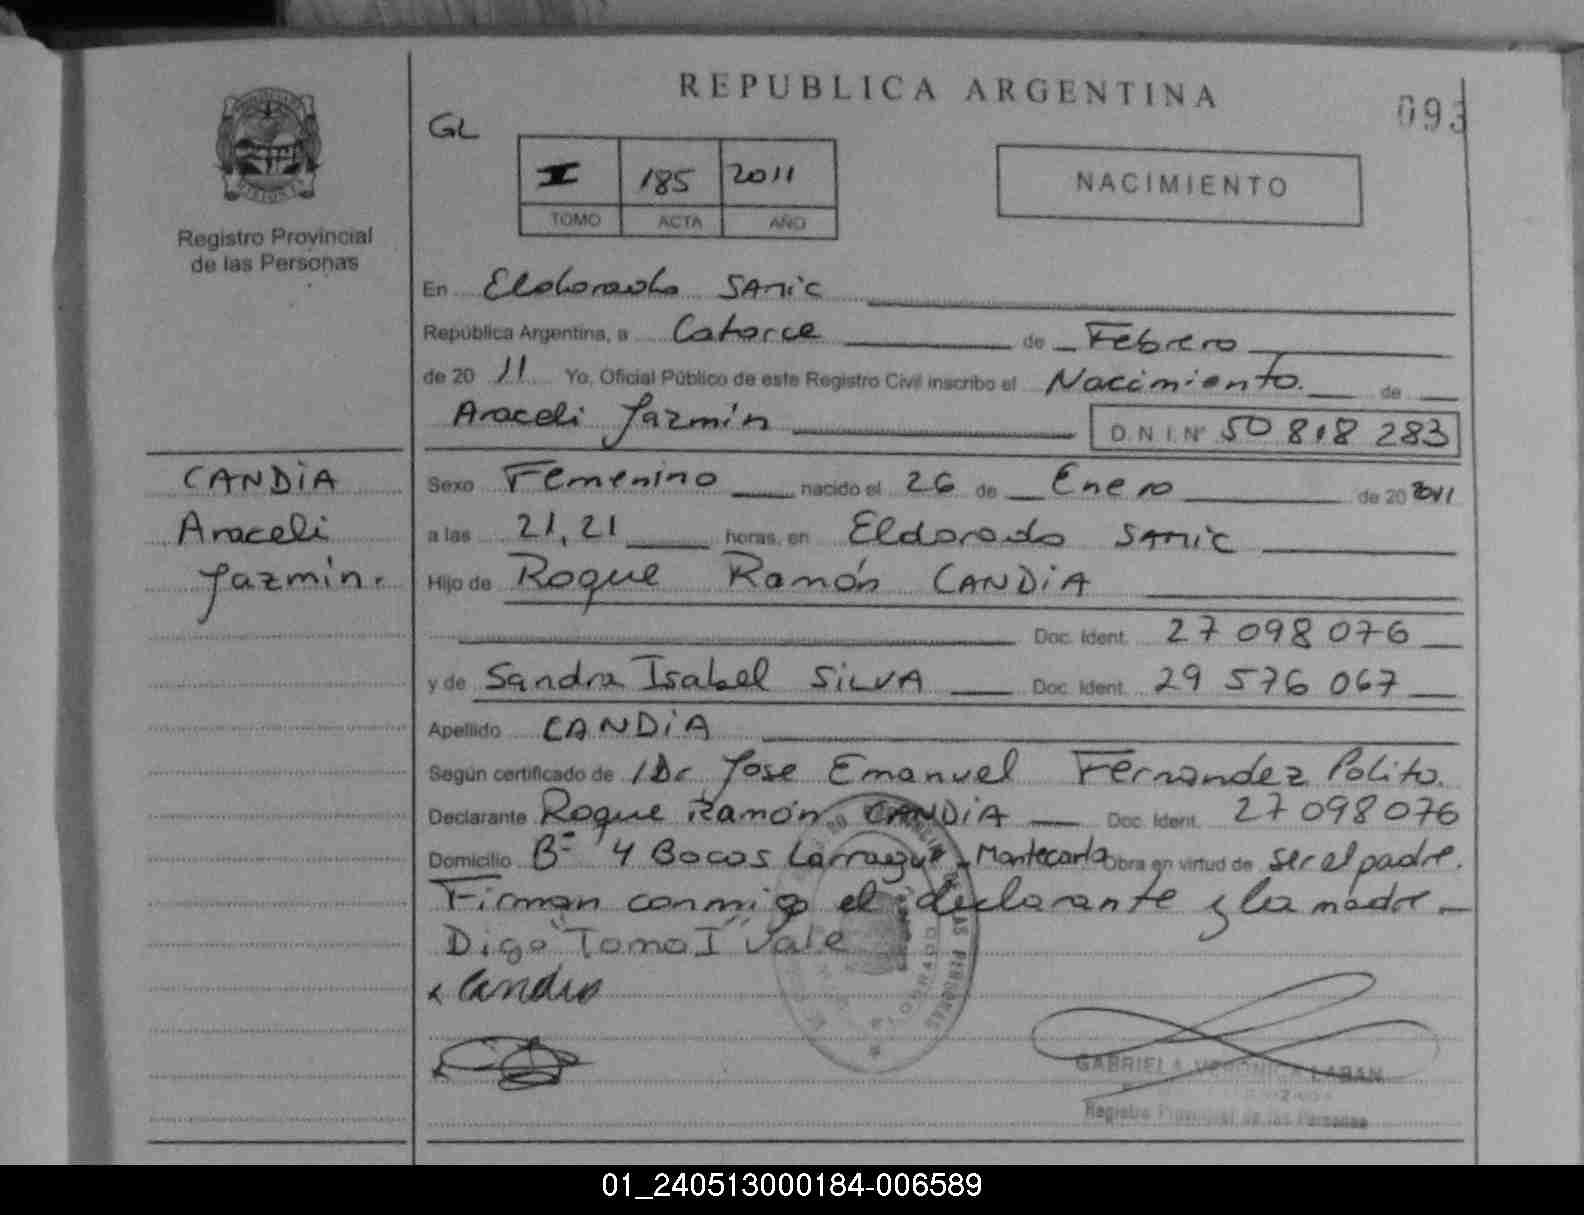 REPUBLICA ARGENTINA
093
GL
I 185 2011
TOMO ACTA AÑO
NACIMIENTO
Registro Provincial
de las Personas
En Eldorado SAMIC
República Argentina, a Catorce de Febrero
de 20 11 Yo, Oficial Público de este Registro Civil inscribo el Nacimiento. de
Araceli Jazmín D.N.I.Nº 50 818 283
CANDIA
Araceli
Jazmín.
Sexo Femenino nacido el 26 de Enero de 20 2011
a las 21,21 horas, en Eldorado SAMIC
Hijo de Roque Ramón CANDIA
Doc. Ident. 27 098 076
y de Sandra Isabel SILVA Doc. Ident. 29 576 067
Apellido CANDIA
Según certificado de Dr Jose Emanuel Fernandez Polito.
Declarante Roque Ramón CANDIA Doc. Ident. 27 098 076
Domicilio Bº 4 Bocas Larrague - Montecarlo Obra en virtud de ser el padre.
Firman conmigo el declarante y la madre
Digo "Tomo I" Vale
x Candia
DE LAS PERSONAS
GABRIELA VERONICA LABAN
Registro Provincial de las Personas
01_240513000184-006589